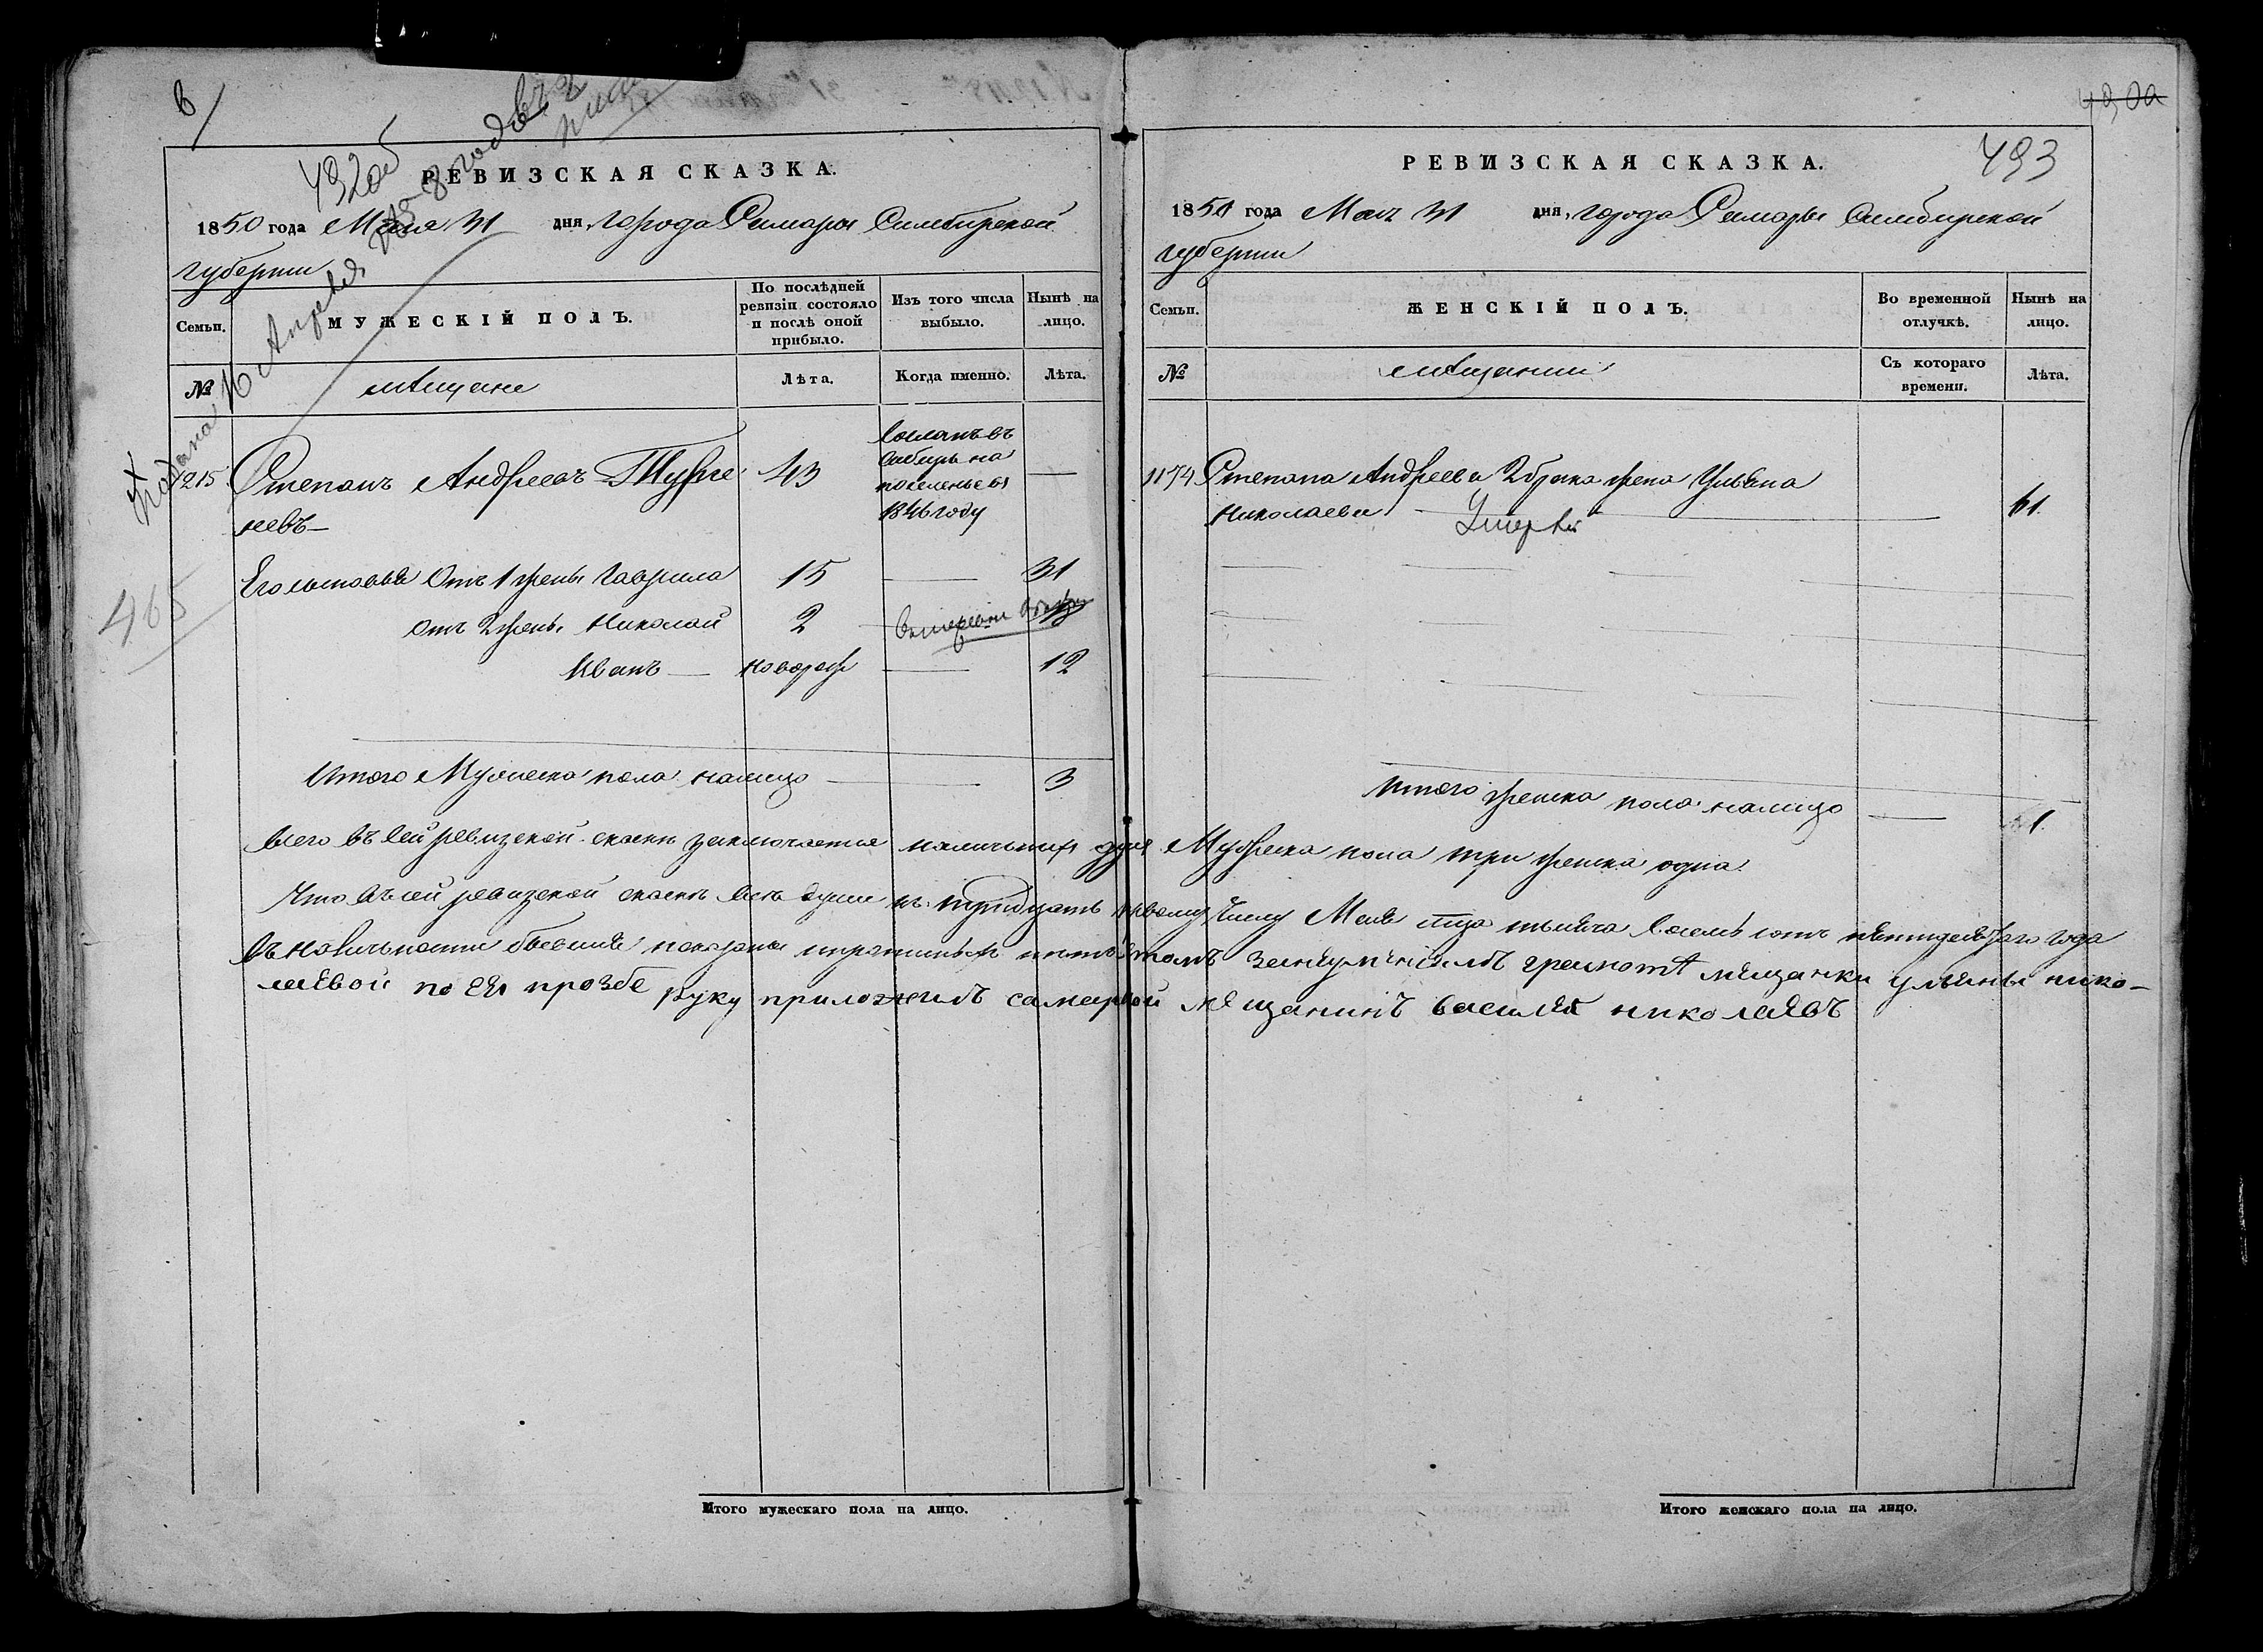 в
492об
РЕВИЗСКАЯ СКАЗКА.
1850 года Мая 31 дня, города Самары Симбирской
губернии
Семьи.
МУЖЕСКІЙ ПОЛЪ.
По послѣдней ревизіи состояло и послѣ оной прибыло.
Изъ того числа выбыло.
Нынѣ на лицо.
№
мѣщане
Лѣта.
Когда именно.
Лѣта.
465
215 Степанъ Андреевъ 43 —
неевъ
Сосланъ въ
Сибирь на
поселенье въ
1846 году
Его сыновья Отъ 1 жены Гаврила 15 — 31
Отъ 2 жены Николай 2
Иванъ — новорож — 12
Итого Мужеска пола налицо — 3
Итого мужескаго пола на лицо.
493
РЕВИЗСКАЯ СКАЗКА.
1850 года Мая 31 дня, города Самары Симбирской
губернии
Семьи.
ЖЕНСКІЙ ПОЛЪ.
Во временной отлучкѣ.
Нынѣ на лицо.
№
мѣщанки
Съ котораго времени.
Лѣта.
1174 Степана Андреева 2 брака жена Ульяна
Николаева — 61
Итого женска пола налицо — 1
Всего въ сей ревизской сказки заключается наличныхъ душъ Мужеска пола три женска одна
Что въ сей ревизской сказке все души къ тридцать первому числу Мая тысяча восемь сотъ пятидесятаго года
въ наличности бывшия показаны
грамоте мещанки ульяны нико-
лаевой по ея прозбе руку приложилъ самарской мещанинъ василей николаевъ
Итого женскаго пола на лицо.